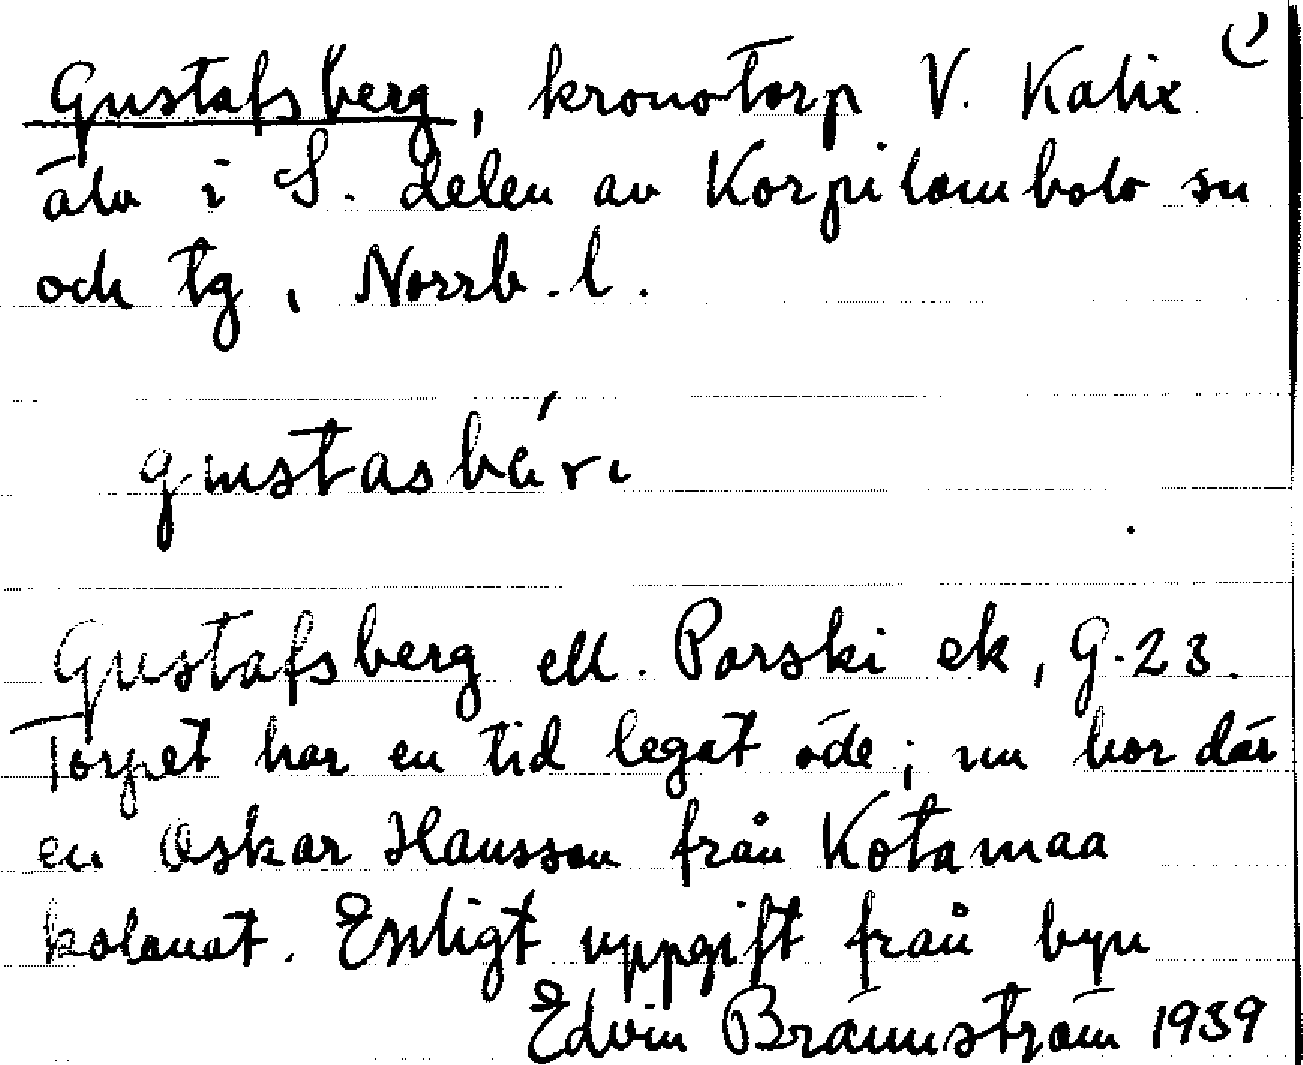 Gustafsberg, kronotorp V. Kalix
älv i S. delen av Korpilombolo sn
och tg, Norrb. l.
gustasbäri
Gustafsberg ell. Porski ek, G. 23.
Torpet har en tid legat öde; nu bor där
en Oskar Hansson från Kotamaa
kolonat. Enligt uppgift från byn
Edvin Brännström 1939